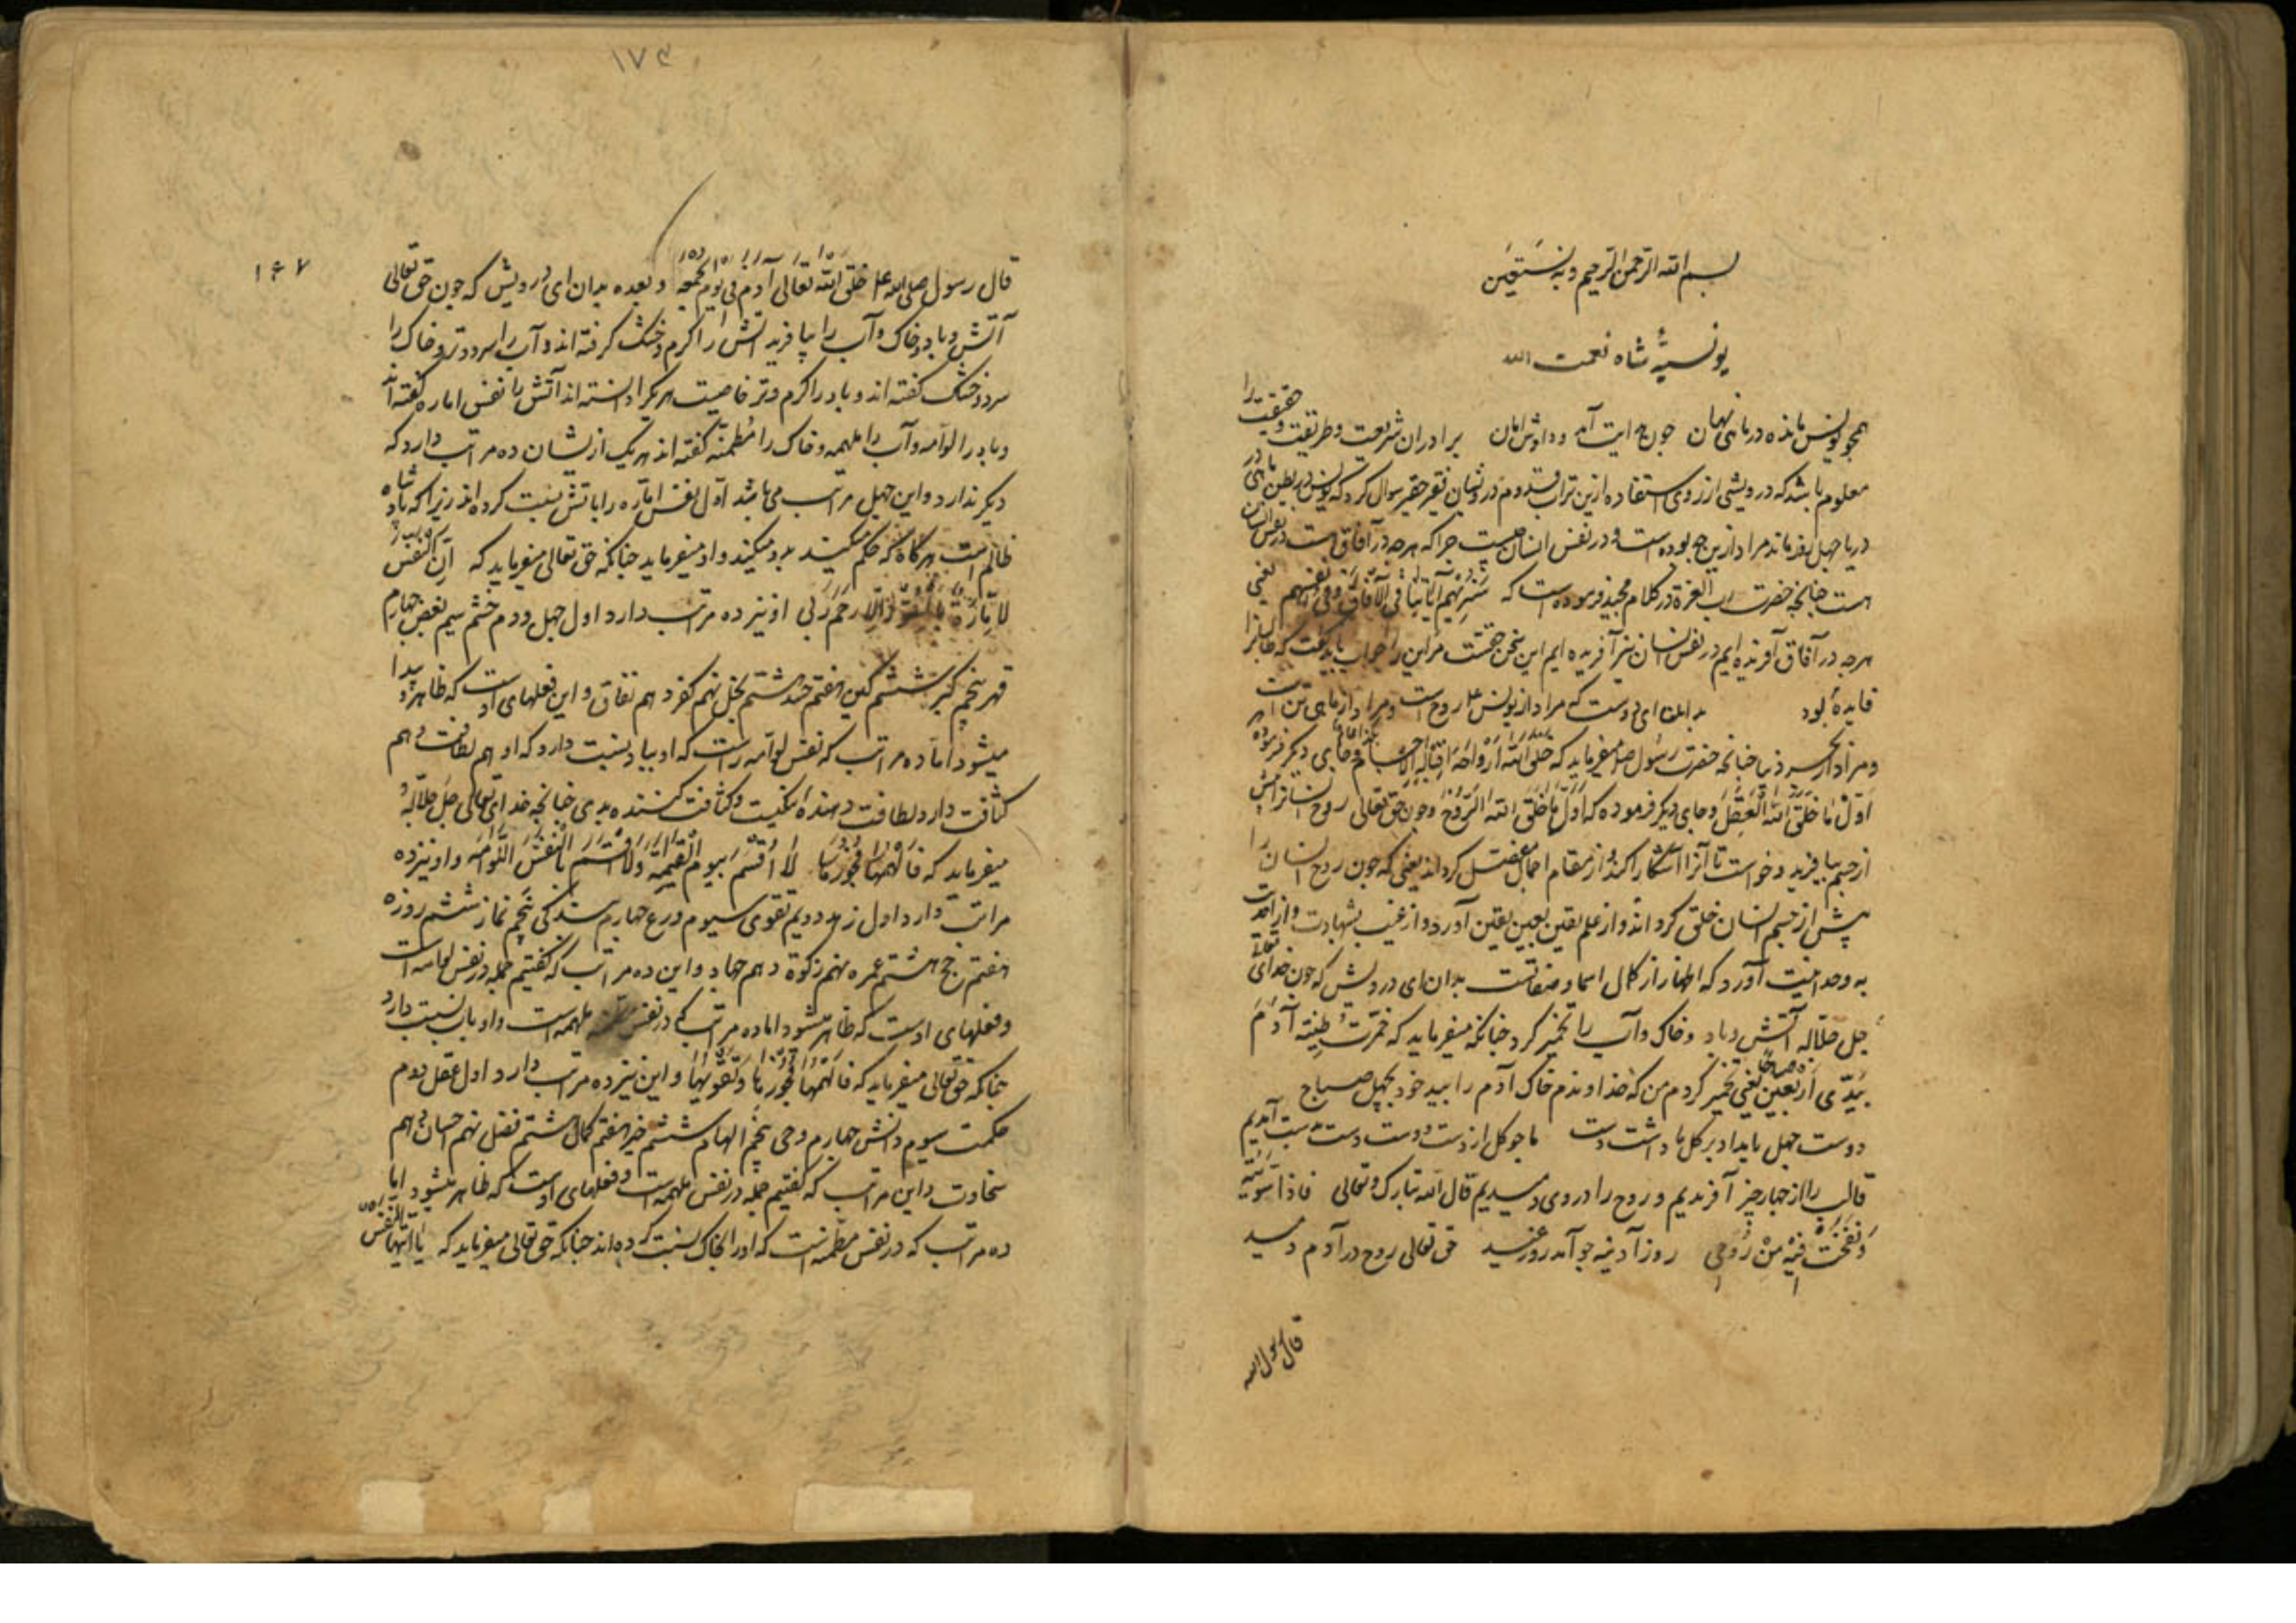 بسم الله الرحمن الرحيم وبه نستعين
يونسيۀ شاه نعمت الله
همچو يونس مانده در ماهى نهان جون ايت آمد برادران شريعت وطريقت وحقيقت را
معلوم باشد كه درويشى از روى استفاده ازين تراب قدوم درويشان فقير حقير سوال كرد كه يونس در بطن ماهى در
دريا چهل روز ماند مراد ازين چه بوده است و در نفس انسان چيست چرا كه هر چه در آفاق است در نفس انسان
هست چنانچه حضرت رب العزة در كلام مجيد فرموده است كه سَنُرِيهِم آيَاتِنَا فِى الْآفَاقِ وَفِى اَنفُسِهِم يعنى
هرچه در آفاق آفريده ايم در نفس انسان نيز آفريده ايم اين سخن حقست مر اين را جواب بايد گفت كه طالبان را
فايدۀ بود بدانكه اى دوست كه مراد از يونس عل روح است و مراد از ماهى تن است
ومراد از بحر دنيا چنانچه حضرت رسول صلعم ميفرمايد كه خلق الله ارواحَهُ قبل الاجسام وجاى ديگر فرموده
اَوَّلُ مَا خَلَقَ اللهُ الْعَقْلَ وجاى ديگر فرموده كه اَوَّلُ مَا خَلَقَ اللهُ الرُّوحَ وچون حق تعالى روح انسان را پيش
از جسم بيافريد وخواست تا آنرا آشكارا كند و از مقام اجمال مفصل گرداند يعنى كه چون روح انسان را
پيش از جسم انسان خلق كرد و از علم يقين بعين يقين آورد و از غيب بشهادت و از احديت
به وحدانيت آورد كه اظهار از كمال اسما وصفاتست بدان اى درويش كه چون خداى تعالى
جل جلاله آتش وباد وخاك وآب را تخمير كرد چنانكه ميفرمايد كه خَمَّرَتُ طِينَة آدَمَ
بِيَدَىَّ اَرْبَعِينَ صباحًا يعنى تخمير كردم من كه خداوندم خاك آدم را بيد خود بچهل صباح
دوست چهل بامداد بر گل ما داشت دست ما چو گل از دست دوست دست بدست آمديم
قالب را از چهار چيز آفريديم و روح را در وى دميديم قال الله تبارك وتعالى فاذا سَوَّيْتُهُ
وَنَفَخْتُ فِيهِ مِنْ رُوحِى روز آدينه چو آمد روز عيد حق تعالى روح در آدم دميد
قال رسول الله
١٧٤
١٦٧
قال رسول صلى الله عل خلق الله تعالى آدم فى يوم الجمعه وبعده بدان اى درويش كه چون حق تعالى
آتش وباد وخاك وآب را بيافريد آتش را گرم وخشك گرفته اند و آب را سرد وتر وخاك را
سرد وخشك گفته اند وباد را گرم وتر خاصيت هر يك را دانسته اند آتش را نفس اماره گفته اند
وباد را لوامه وآب را ملهمه وخاك را مُطمئنّه گفته اند هر يك از ايشان ده مراتب دارد كه
ديگر ندارد واين چهل مراتب مى باشد اوّل نفس امّاره را باتش نسبت كرده اند زيرا كه پادشاه
ظالم است هرگاه كه حكم ميكند بد ميكند واو ميفرمايد چنانكه حق تعالى ميفرمايد كه اِنَّ النَّفسَ
لَاَمَّارَةٌ بِالسُّوءِ اِلَّا مَا رَحِمَ رَبِّى او نيز ده مراتب دارد اول جهل ودوم خشم سيم بغض چهارم
قهر پنجم كبر ششم كين هفتم حسد هشتم بخل نهم كفر دهم نفاق واين فعلهاى اوست كه ظاهر و پيدا
ميشود اما ده مراتب كه نفس لوّامه راست كه او بباد نسبت دارد كه او هم لطافت وهم
كثافت دارد لطافت كننده بدى چنانچه خداى تعالى جلّ جلاله
ميفرمايد كه فَاَلْهَمَهَا فُجُورَهَا لَا اُقْسِمُ بِيَومِ الْقِيمَةِ وَلَا اُقْسِمُ بِالنَّفْسِ اللَّوَّامَه واو نيز ده
مراتب دارد اول زهد دويم تقوى سيوم ورع چهارم بندگى پنجم نماز ششم روزه
هفتم حج هشتم عمره نهم زكوة دهم جهاد واين ده مراتب كه گفتيم جمله در نفس لوامه است
وفعلهاى اوست كه ظاهر ميشود اما ده مراتب كه در نفس ملهمه است واو باب نسبت دارد
چنانكه حق تعالى ميفرمايد كه فَاَلْهَمَهَا فُجُورَهَا وَتَقْوٰيهَا واين نيز ده مراتب دارد اول عقل دوم
حكمت سيوم دانش چهارم وحى پنجم الهام ششم خير هفتم كمال هشتم فضل نهم احسان دهم
سخاوت واين مراتب كه گفتيم جمله در نفس ملهمه است وفعلهاى اوست كه ظاهر ميشود اما
ده مراتب كه در نفس مطمئنه است كه او را بخاك نسبت كرده اند چنانكه حق تعالى ميفرمايد كه يَا اَيَّتُهَا النَّفْسُ